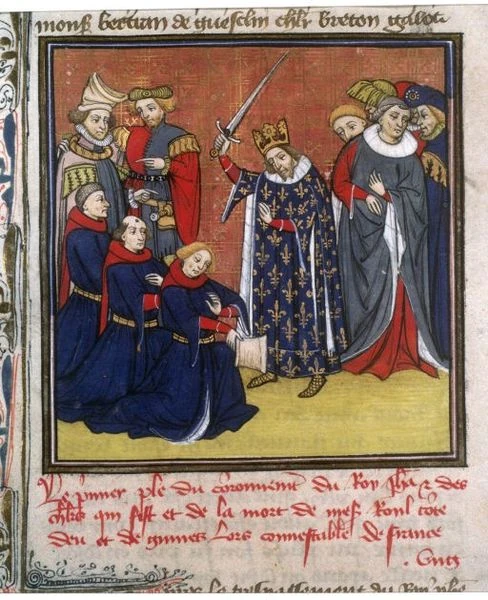 mons bertran de guesclin chlr breton
Le pmier ple du coronnemt du Roy Jhan et des
chlrs qui fist et de la mort de mess Raoul conte
deu et de guines Lors connestable de france
le trespassement du Roy